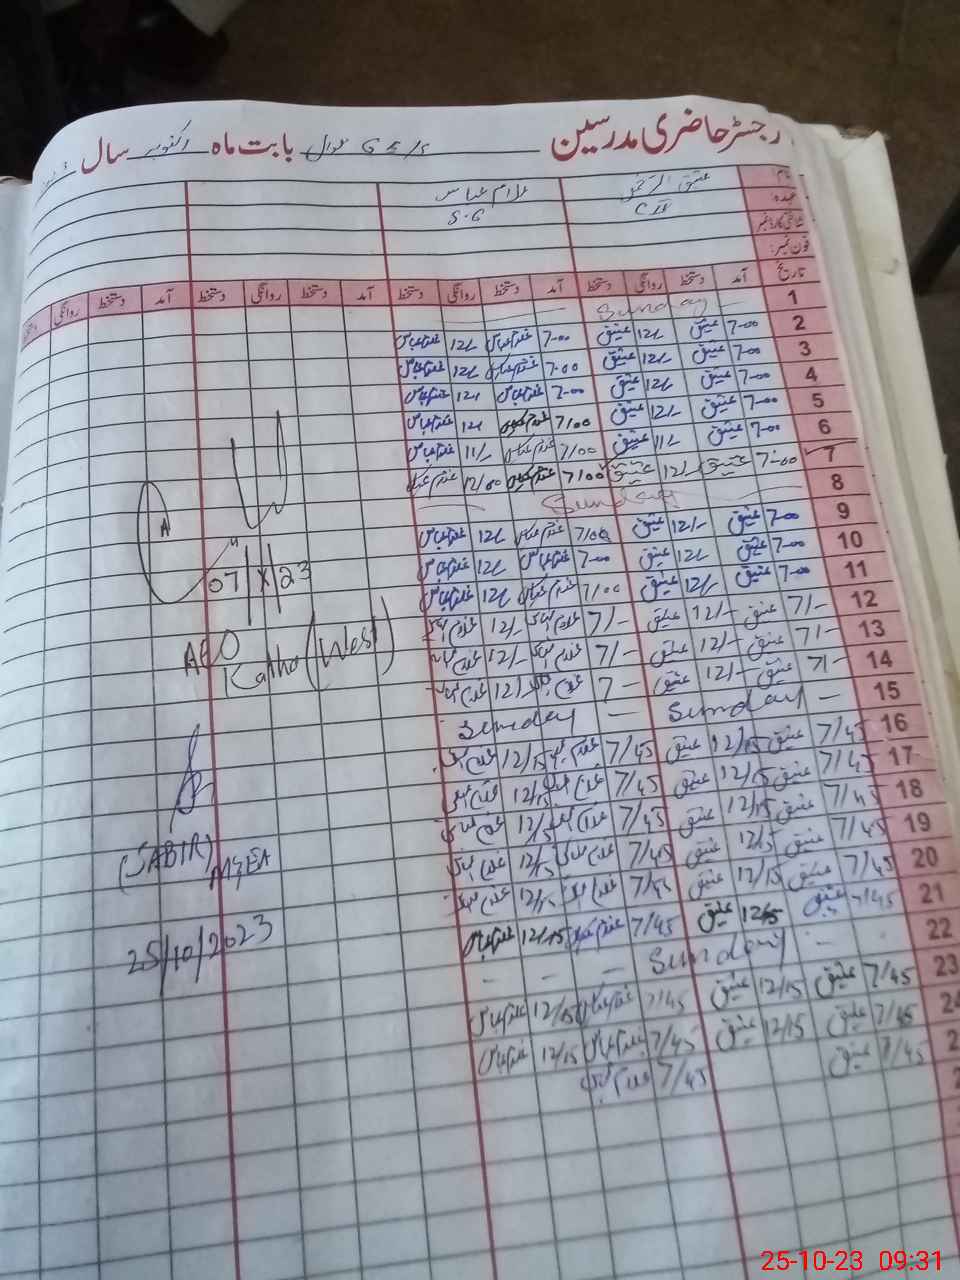 رجسٹر حاضری مدرسین G E/S بابت ماہ اکتوبر سال
نام: عتیق الرحمن غلام عباس
عہدہ: S.G
شناختی کارڈ نمبر
فون نمبر:
تاریخ آمد دستخط روانگی دستخط آمد دستخط روانگی دستخط آمد دستخط روانگی دستخط آمد دستخط روانگی
1 Sunday
2 7-00 عتیق 12/- عتیق 7-00 غلام عباس 12/- غلام عباس
3 7-00 عتیق 12/- عتیق 7-00 غلام عباس 12/- غلام عباس
4 7-00 عتیق 12/- عتیق 7-00 غلام عباس 12/- غلام عباس
5 7-00 عتیق 12/- عتیق 7/00 غلام عباس 12/- غلام عباس
6 7-00 عتیق 11/- عتیق 7/00 غلام عباس 11/- غلام عباس
7 7-00 عتیق 12/- عتیق 7/00 غلام عباس 12/00 غلام عباس
8 Sunday
9 7-00 عتیق 12/- عتیق 7/00 غلام عباس 12/- غلام عباس
10 7-00 عتیق 12/- عتیق 7-00 غلام عباس 12/- غلام عباس
11 7-00 عتیق 12/- عتیق 7/00 غلام عباس 12/- غلام عباس
12 7/- عتیق 12/- عتیق 7/- غلام عباس 12/- غلام عباس
13 7/- عتیق 12/- عتیق 7/- غلام عباس 12/- غلام عباس
14 7/- عتیق 12/- عتیق 7 - غلام عباس 12/- غلام عباس
15 - Sunday - Sunday
16 7/45 عتیق 12/15 عتیق 7/45 غلام عباس 12/15 غلام عباس
17 7/45 عتیق 12/15 عتیق 7/45 غلام عباس 12/15 غلام عباس
18 7/45 عتیق 12/15 عتیق 7/45 غلام عباس 12/15 غلام عباس
19 7/45 عتیق 12/15 عتیق 7/45 غلام عباس 12/15 غلام عباس
20 7/45 عتیق 12/15 عتیق 7/45 غلام عباس 12/15 غلام عباس
21 7/45 عتیق 12/15 عتیق 7/45 غلام عباس 12/15 غلام عباس
22 - Sunday - - -
23 7/45 عتیق 12/15 عتیق 7/45 غلام عباس 12/15 غلام عباس
24 7/45 عتیق 12/15 عتیق 7/45 غلام عباس 12/15 غلام عباس
2 7/45 عتیق 7/45 غلام عباس
07/X/23
AEO
Katha (West)
(SABIR)
MEA
25/10/2023
25-10-23 09:31